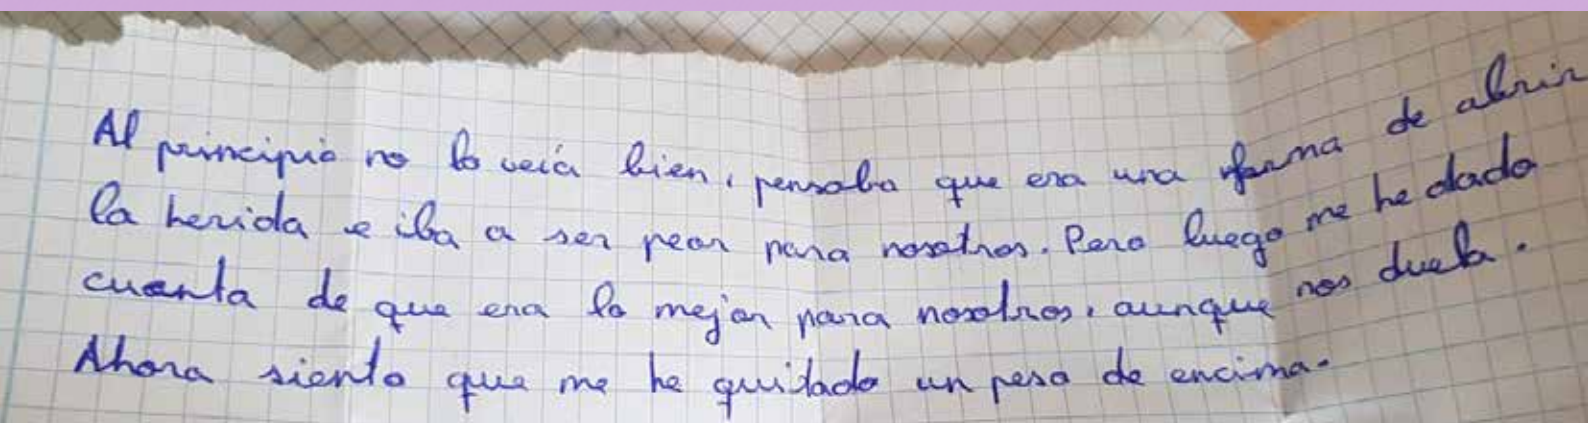 Al principio no lo veía bien, pensaba que era una forma de abrir
la herida e iba a ser peor para nosotros. Pero luego me he dado
cuenta de que era lo mejor para nosotros, aunque nos duela.
Ahora siento que me he quitado un peso de encima.